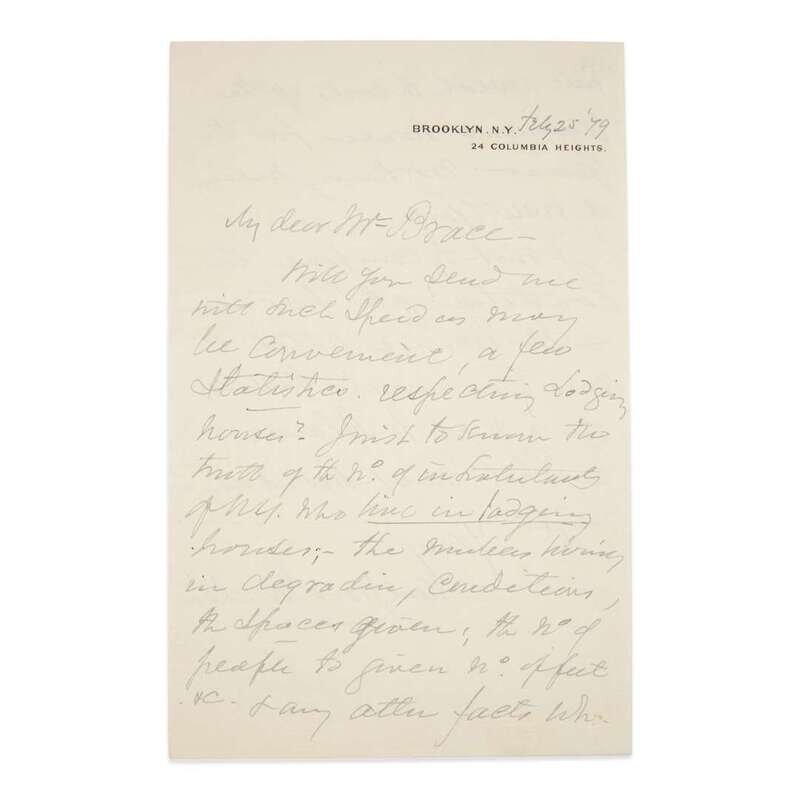 BROOKLYN. N.Y. Feby 25 '79
24 COLUMBIA HEIGHTS.
My dear Mr Brace -
Will you send me
with such speed as may
be convenient, a few
Statistics. respecting Lodging
houses? I wish to know the
truth of the No. of inhabitants
of N.Y. who live in lodging
houses; - the numbers living
in degrading conditions,
the spaces given; the No of
people to given No. of feet
&c. & any other facts wh.